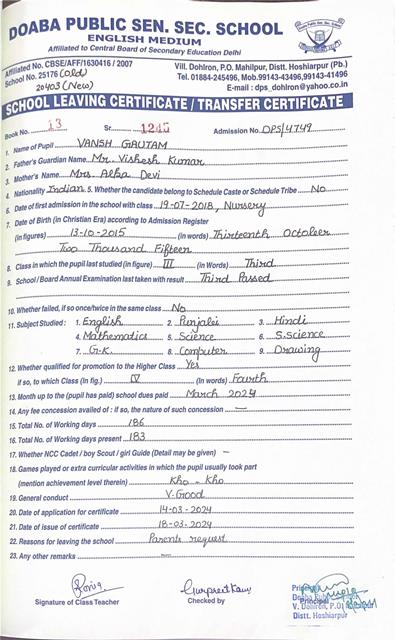 DOABA PUBLIC SEN. SEC. SCHOOL
ENGLISH MEDIUM
Affiliated to Central Board of Secondary Education Delhi
Affiliated No. CBSE/AFF/1630416 / 2007
School No. 25176 (Old)
20403 (New)
Vill. Dohlron, P.O. Mahilpur, Distt. Hoshiarpur (Pb.)
Tel. 01884-245496, Mob.99143-43496,99143-41496
E-mail : dps_dohlron@yahoo.co.in
SCHOOL LEAVING CERTIFICATE / TRANSFER CERTIFICATE
Book No. 13 Sr. 1245 Admission No. DPS/4749
1. Name of Pupil VANSH GAUTAM
2. Father's Guardian Name Mr. Vishesh Kumar
3. Mother's Name Mrs. Alka Devi
4. Nationality Indian 5. Whether the candidate belong to Schedule Caste or Schedule Tribe No
6. Date of first admission in the school with class 19-07-2018, Nursery
7. Date of Birth (in Christian Era) according to Admission Register
(in figures) 13-10-2015 (in words) Thirteenth October
Two Thousand Fifteen
8. Class in which the pupil last studied (in figure) III (in Words) Third
9. School / Board Annual Examination last taken with result Third Passed
10. Whether failed, if so once/twice in the same class No
11. Subject Studied : 1. English 2. Punjabi 3. Hindi
4. Mathematics 5. Science 6. S.Science
7. G.K. 8. Computer 9. Drawing
12. Whether qualified for promotion to the Higher Class Yes
if so, to which Class (In fig.) IV (in Words) Fourth
13. Month up to the (pupil has paid) school dues paid March 2024
14. Any fee concession availed of : if so, the nature of such concession —
15. Total No. of Working days 186
16. Total No. of Working days present 183
17. Whether NCC Cadet / boy Scout / girl Guide (Detail may be given) —
18. Games played or extra curricular activities in which the pupil usually took part
(mention achievement level therein) Kho - Kho
19. General conduct V. Good
20. Date of application for certificate 14-03-2024
21. Date of issue of certificate 18-03-2024
22. Reasons for leaving the school Parents request
23. Any other remarks —
Signature of Class Teacher
Gurpreet Kaur
Checked by
Principal
Doaba
V. Dohlron, P.O.
Distt. Hoshiarpur